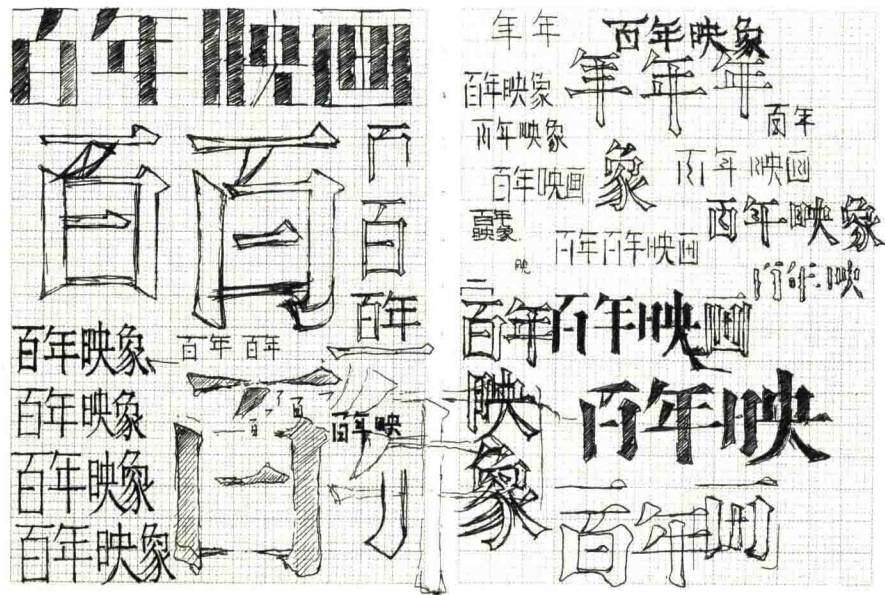 百年映画
百百
百
百年
百年映象
百年 百年
百年映象
百年映
百年映象
百年映象
年 年
百年映象
百年映象
年年年
百年
百年映象
百年映画
象
百年映画
百年映象
百年映象
映
百年百年映画
百年映
百年百年映画
映
象
百年映
百年